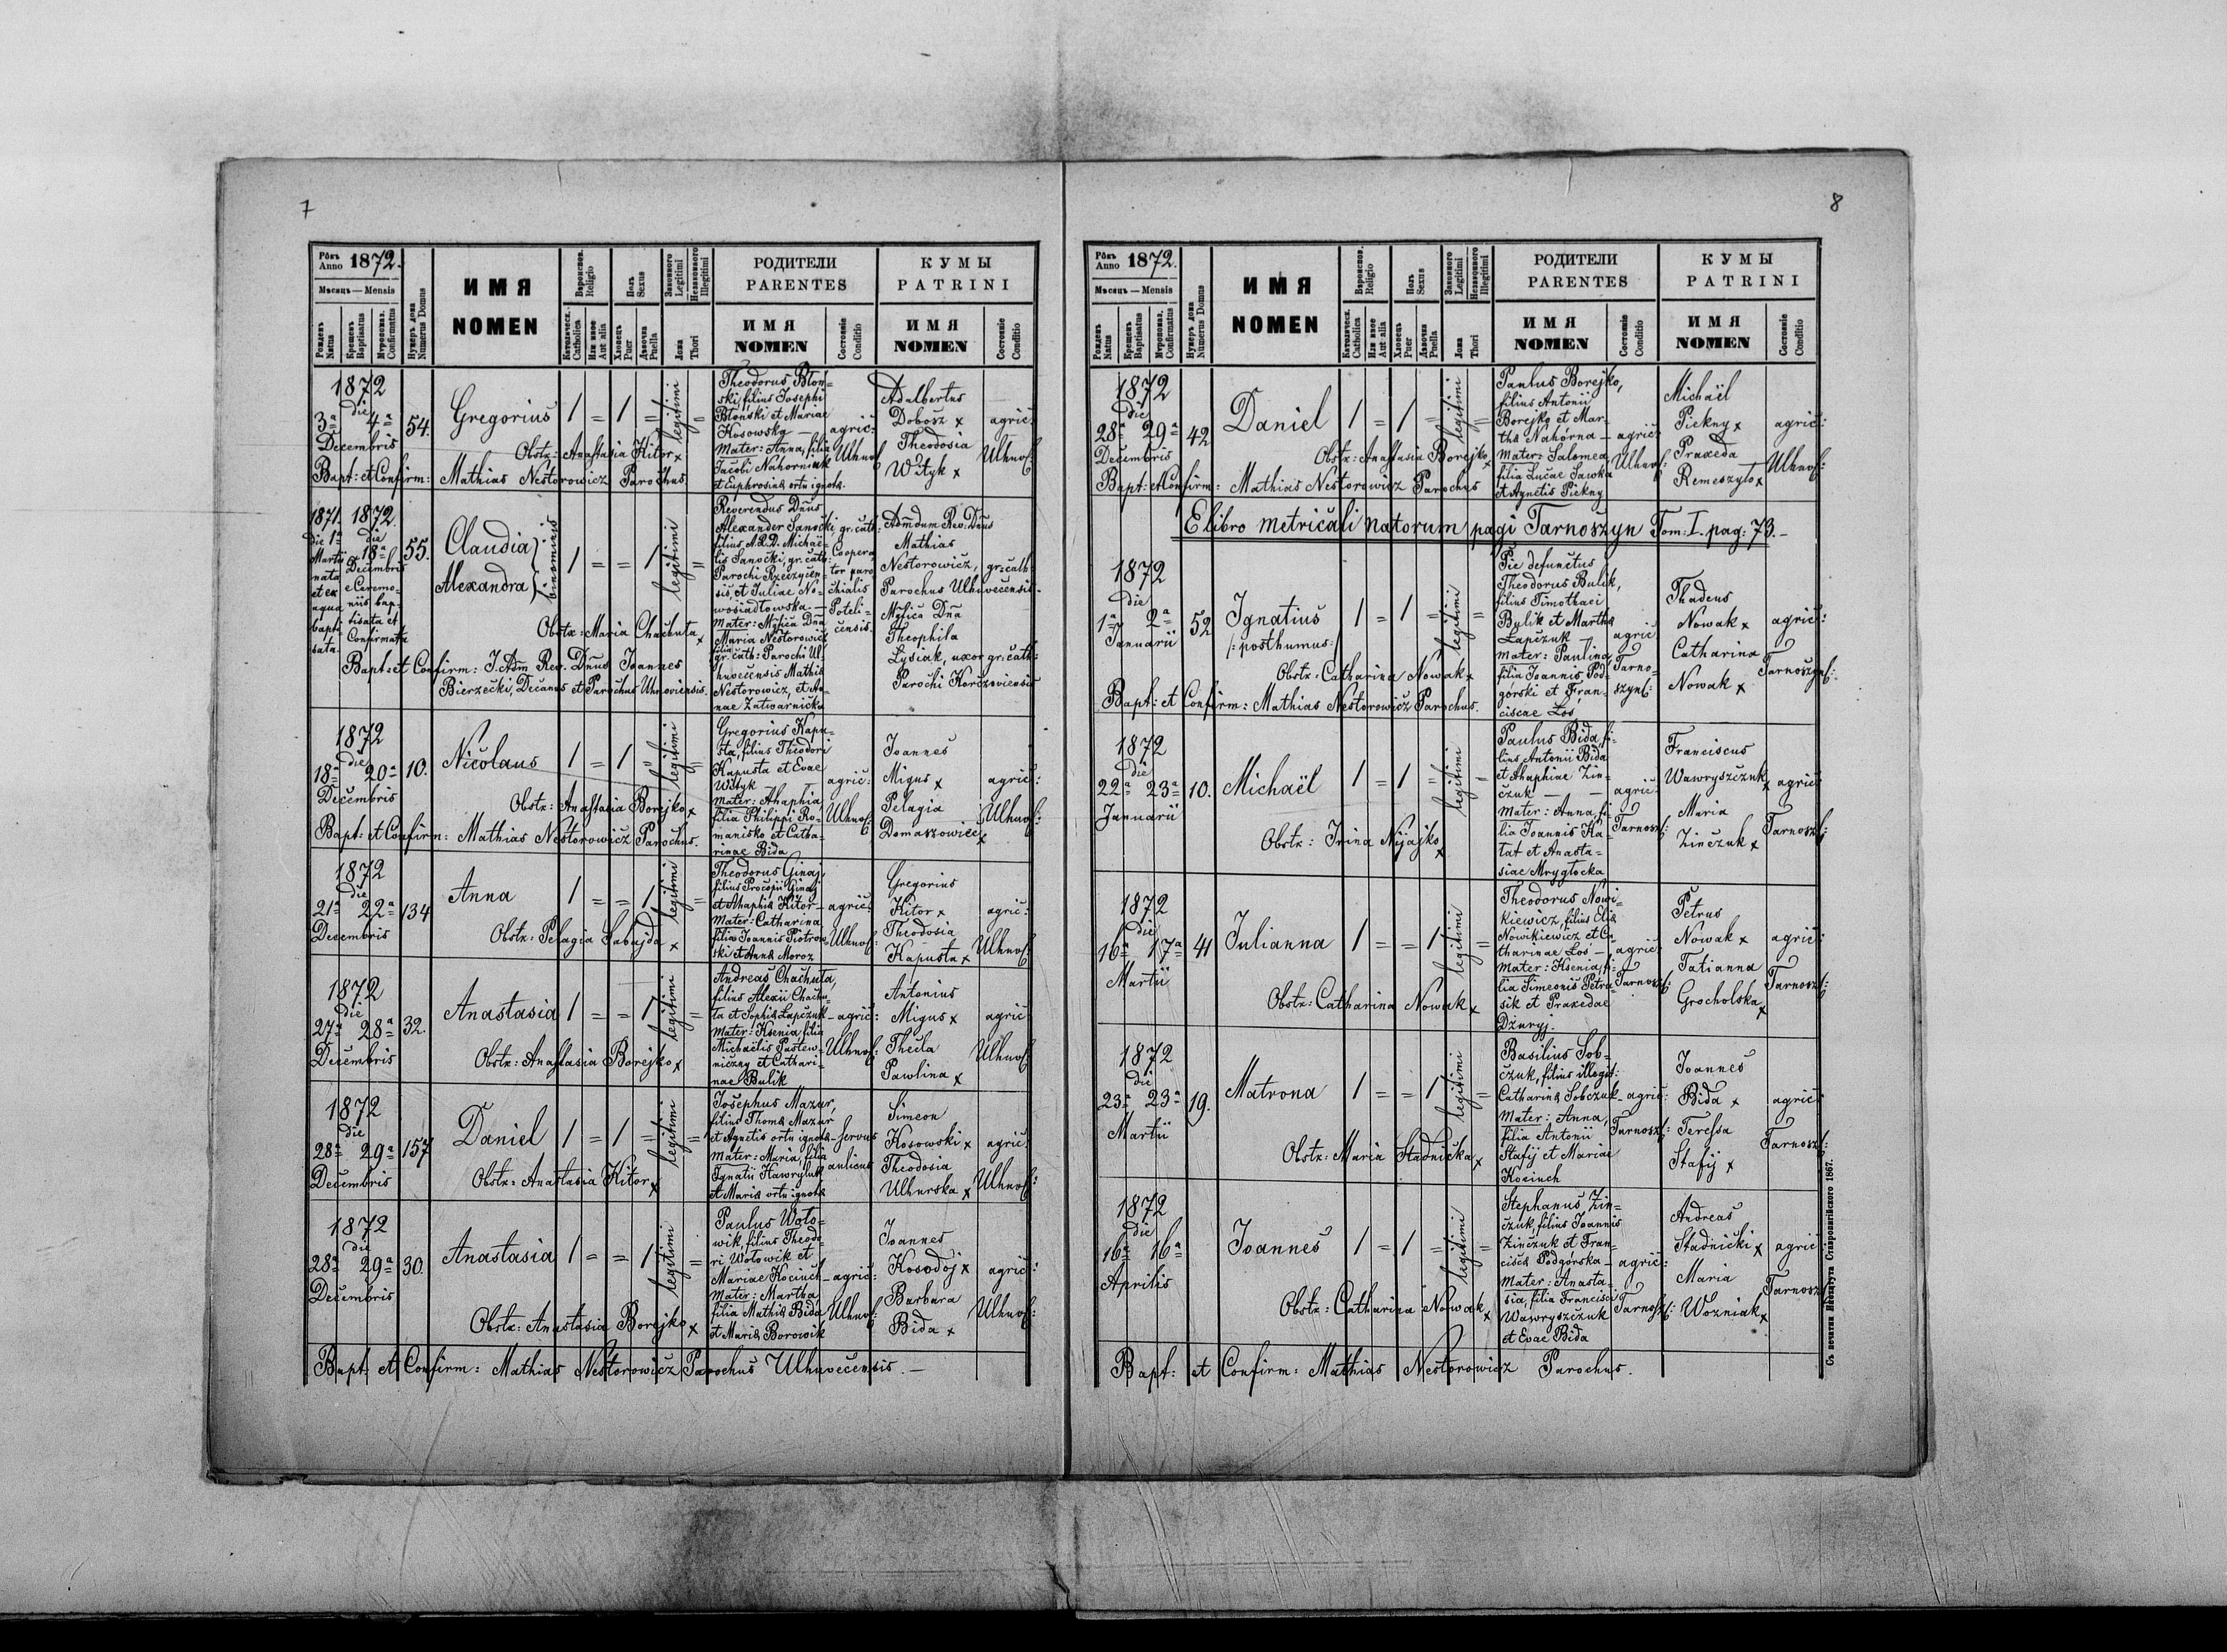 7
Рôкъ Anno 1872.
Мѣсяцъ — Mensis
Рожденъ Natus
Крещенъ Baptisatus
Мѵропомаз. Confirmatus
Нумеръ дома Numerus Domus
ИМЯ
NOMEN
Вѣроиспов. Religio
Католическ. Catholica
Или иное Aut alia
Полъ Sexus
Хлопецъ Puer
Дѣвочка Puella
Законного Legitimi
Незаконного Illegitimi
Ложа Thori
РОДИТЕЛИ
PARENTES
ИМЯ
NOMEN
Состояніе Conditio
КУМЫ
PATRINI
ИМЯ
NOMEN
Состояніе Conditio
1872
die
3a 4a
Decembris
54.
Gregorius
1 = 1 =
legitimi
Theodorus Błoń-
ski, filius Josephi
Błoński et Mariae
Kosowska —
Mater: Anna, filia
Jacobi Nahorniak
et Euphrosinae ortu ignotae.
agric:
Uhnof
Adalbertus
Dobosz x
Theodosia
Wstyk x
agric:
Uhnof:
Obstx: Anastasia Kitor x
Bapt: et Confirm: Mathias Nestorowicz Parochus
1871. 1872.
die 1a die
Martii 18a
nata Decembris
et ex e Ceremo-
aqua niis bap-
bapti- tisata et
sata. Confirmata
55.
Claudia
Alexandra
binomines
1 = = 1
legitimi
Reverendus Dnus
Alexander Sanocki, gr. cath:
filius A.R.D. Michaë-
lis Sanocki, gr. cath:
Parochi Rzeczycen-
sis, et Juliae No-
wosiadłowska —
Mater: Mgfica Dna
Maria Nestorowicz
filia
gr. cath: Parochi Ul-
huvecensis Mathia
Nestorowicz, et An-
nae Zatwarnicka
Coopera
tor paro
chialis
Poteli-
censis.
Admdum Rev. Dnus
Mathias
Nestorowicz, gr: cath:
Parochus Ulhuvecensis
Mgfica Dna
Theophila
Lysiak, uxor gr: cath:
Parochi Korczoviensis
Obstx: Maria Chachuta x
Bapt: et Confirm: J. Adm Rev. Dnus Joannes
Bierzecki, Decanus et Parochus Uhnoviensis.
1872
die
18a 20a
Decembris
10.
Nicolaus
1 = 1 =
legitimi
Gregorius Kapu-
sta, filius Theodori
Kapusta et Evae
Wstyk —
Mater: Ahaphia,
filia Philippi Ro-
manisko et Catha-
rinae Bida
agric:
Ulhuof:
Joannes
Migus x
Pelagia
Domaszowiec x
agric:
Ulhuof:
Obstx: Anastasia Borejko x
Bapt: et Confirm: Mathias Nestorowicz Parochus.
1872
die
21a 22a
Decembris
134
Anna
1 = = 1
legitimi
Theodorus Ginaj,
filius Procopii Ginaj
et Ahaphiae Kitor —
Mater: Catharina
filia Joannis Piotrow-
ski et Annae Moroz
agric:
Ulhuof:
Gregorius
Kitor x
Theodosia
Kapusta x
agric:
Ulhuof:
Obstx: Pelagia Sabajda x
1872
die
27a 28a
Decembris
32.
Anastasia
1 = = 1
legitimi
Andreas Chachuta,
filius Alexii Chachu-
ta et Sophiae Łapczuk —
Mater: Ksenia, filia
Michaëlis Pastew-
niczny et Cathari-
nae Bulik
agric:
Ulhuof:
Antonius
Migus x
Thecla
Pawlina x
agric:
Ulhuof:
Obstx: Anastasia Borejko x
1872
die
28a 29a
Decembris
157
Daniel
1 = 1 =
legitimi
Josephus Mazur,
filius Thomae Mazur
et Agnetis ortu ignotae —
Mater: Maria, filia
Ignatii Hawryluk
et Mariae ortu ignotae
servus
aulicus
Simeon
Kosowski x
Theodosia
Ulhurska x
agric:
Ulhuof:
Obstx: Anastasia Kitor x
1872
die
28a 29a
Decembris
30.
Anastasia
1 = = 1
legitimi
Paulus Woło-
wik, filius Theodo-
ri Wołowik et
Mariae Kociuch —
Mater: Martha,
filia Mathiae Bida
et Mariae Borowik
agric:
Ulhuof:
Joannes
Kosodoj x
Barbara
Bida x
agric:
Ulhuof:
Obstx: Anastasia Borejko x
Bapt: et Confirm: Mathias Nestorowicz Parochus Ulhuvecensis. —
8
Рôкъ Anno 1872.
Мѣсяцъ — Mensis
Рожденъ Natus
Крещенъ Baptisatus
Мѵропомаз. Confirmatus
Нумеръ дома Numerus Domus
ИМЯ
NOMEN
Вѣроиспов. Religio
Католическ. Catholica
Или иное Aut alia
Полъ Sexus
Хлопецъ Puer
Дѣвочка Puella
Законного Legitimi
Незаконного Illegitimi
Ложа Thori
РОДИТЕЛИ
PARENTES
ИМЯ
NOMEN
Состояніе Conditio
КУМЫ
PATRINI
ИМЯ
NOMEN
Состояніе Conditio
1872
die
28a 29a
Decembris
42
Daniel
1 = 1 =
legitimi
Paulus Borejko,
filius Antonii
Borejko et Mar-
thae Nahórna —
Mater: Salomea,
filia Lucae Sawka
et Agnetis Piekny
agric:
Ulhuof:
Michaël
Piekny x
Praxeda
Remeszyło x
agric:
Ulhuof:
Obstx: Anastasia Borejko x
Bapt: et Confirm: Mathias Nestorowicz Parochus
E libro metricali natorum pagi Tarnoszyn Tom: I. pag: 73. —
1872
die
1a 2a
Januarii
52
Ignatius
/: posthumus :/
1 = 1 =
legitimi
Pie defunctus
Theodorus Bulik,
filius Timothaei
Bylik et Marthae
Łapczuk —
Mater: Paulina,
filia Joannis Pod-
górski et Fran-
ciscae Łoś
agric
Tarno-
szynf:
Thadeus
Nowak x
Catharina
Nowak x
agric:
Tarnoszynf:
Obstx: Catharina Nowak x
Bapt: et Confirm: Mathias Nestorowicz Parochus.
1872
die
22a 23a
Januarii
10.
Michaël
1 = 1 =
legitimi
Paulus Bida, fi-
lius Antonii Bida
et Ahaphiae Zin-
czuk —
Mater: Anna, fi-
lia Joannis Ka-
tat et Anasta-
siae Mrygłocka
agric:
Tarnoszf:
Franciscus
Wawryszczuk x
Maria
Zinczuk x
agric:
Tarnoszf:
Obstx: Irina Nijajko x
1872
die
16a 17a
Martii
41
Julianna
1 = = 1
legitimi
Theodorus Nowi-
kiewicz, filius Eliae
Nowikiewicz et Ca-
tharinae Łoś —
Mater: Ksenia, fi-
lia Simeonis Petra-
sik et Praxedae
Dżuryj.
agric:
Tarnoszf:
Petrus
Nowak x
Tatianna
Grocholska x
agric:
Tarnoszf:
Obstx: Catharina Nowak x
1872
die
23a 23a
Martii
19.
Matrona
1 = = 1
legitimi
Basilius Sob-
czuk, filius illegit:
Catharinae Sobczuk —
Mater: Anna,
filia Antonii
Stafij et Mariae
Kociuch
agric:
Tarnoszf:
Joannes
Bida x
Teressa
Stafij x
agric:
Tarnoszf:
Obstx: Maria Stadnicka x
1872
die
16a 16a
Aprilis
Joannes
1 = 1 =
legitimi
Stephanus Zin-
czuk, filius Joannis
Zinczuk et Fran-
ciscae Podgórska —
Mater: Anasta-
sia, filia Francisci
Wawryszczuk
et Evae Bida
agric:
Tarnoszf:
Andreas
Stadnicki x
Maria
Woźniak x
agric:
Tarnoszf:
Obstx: Catharina Nowak x
Bapt: et Confirm: Mathias Nestorowicz Parochus.
Съ печатни Института Ставропигійского 1867.